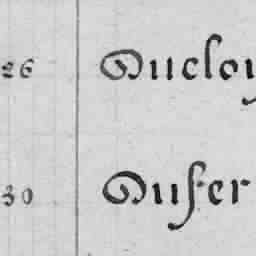 26 Duclou
30 Dufer